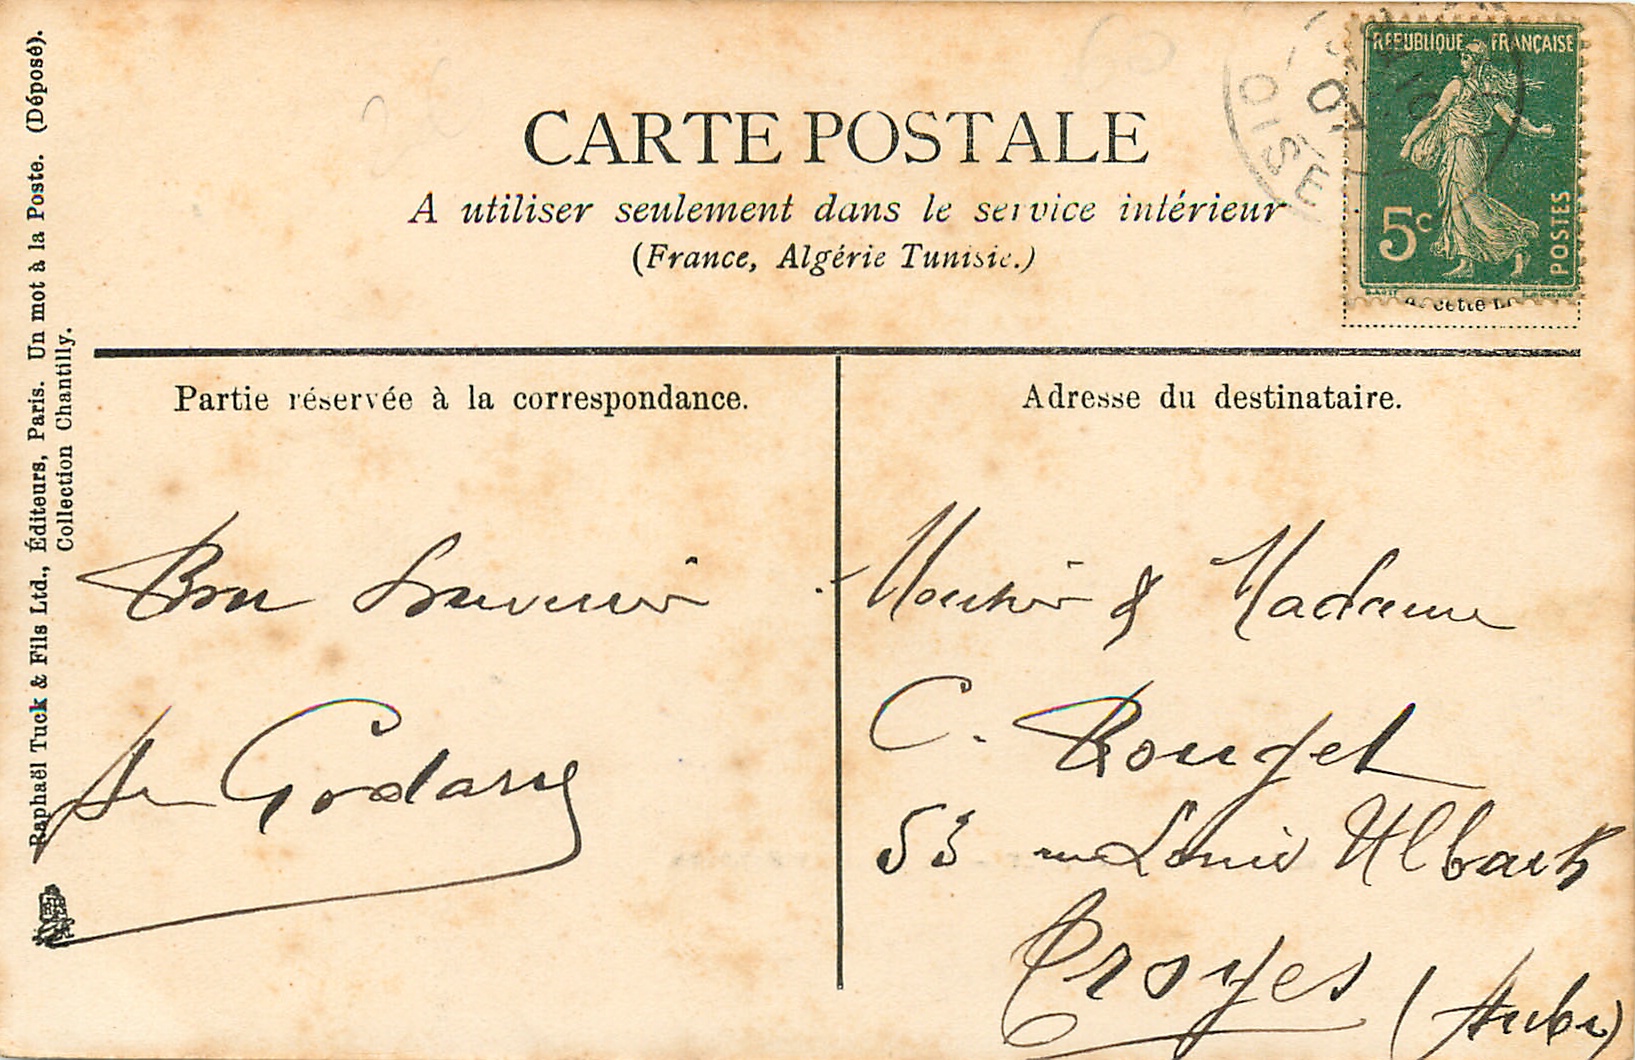 CARTE POSTALE
A utiliser seulement dans le service intérieur
(France, Algérie Tunisie.)
REPUBLIQUE FRANÇAISE
5c
POSTES
OISE
07
cette
Partie réservée à la correspondance.
Bon Souvenir
Godard
Adresse du destinataire.
Monsieur & Madame
C. Rouget
53 rue Louis Ulbach
Troyes (Aube)
Raphaël Tuck & Fils Ltd., Éditeurs, Paris. Un mot à la Poste. (Déposé).
Collection Chantilly.